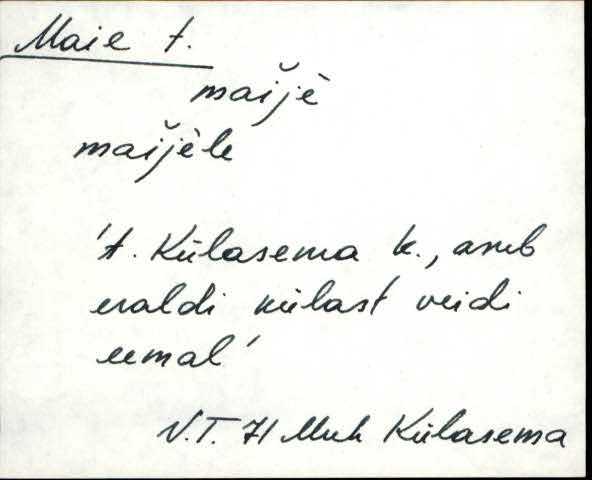 Maie t.
maĭjè
maĭjèle
't. Külasema k., asub
eraldi külast veidi
eemal'
V.T. 71 Muh Külasema